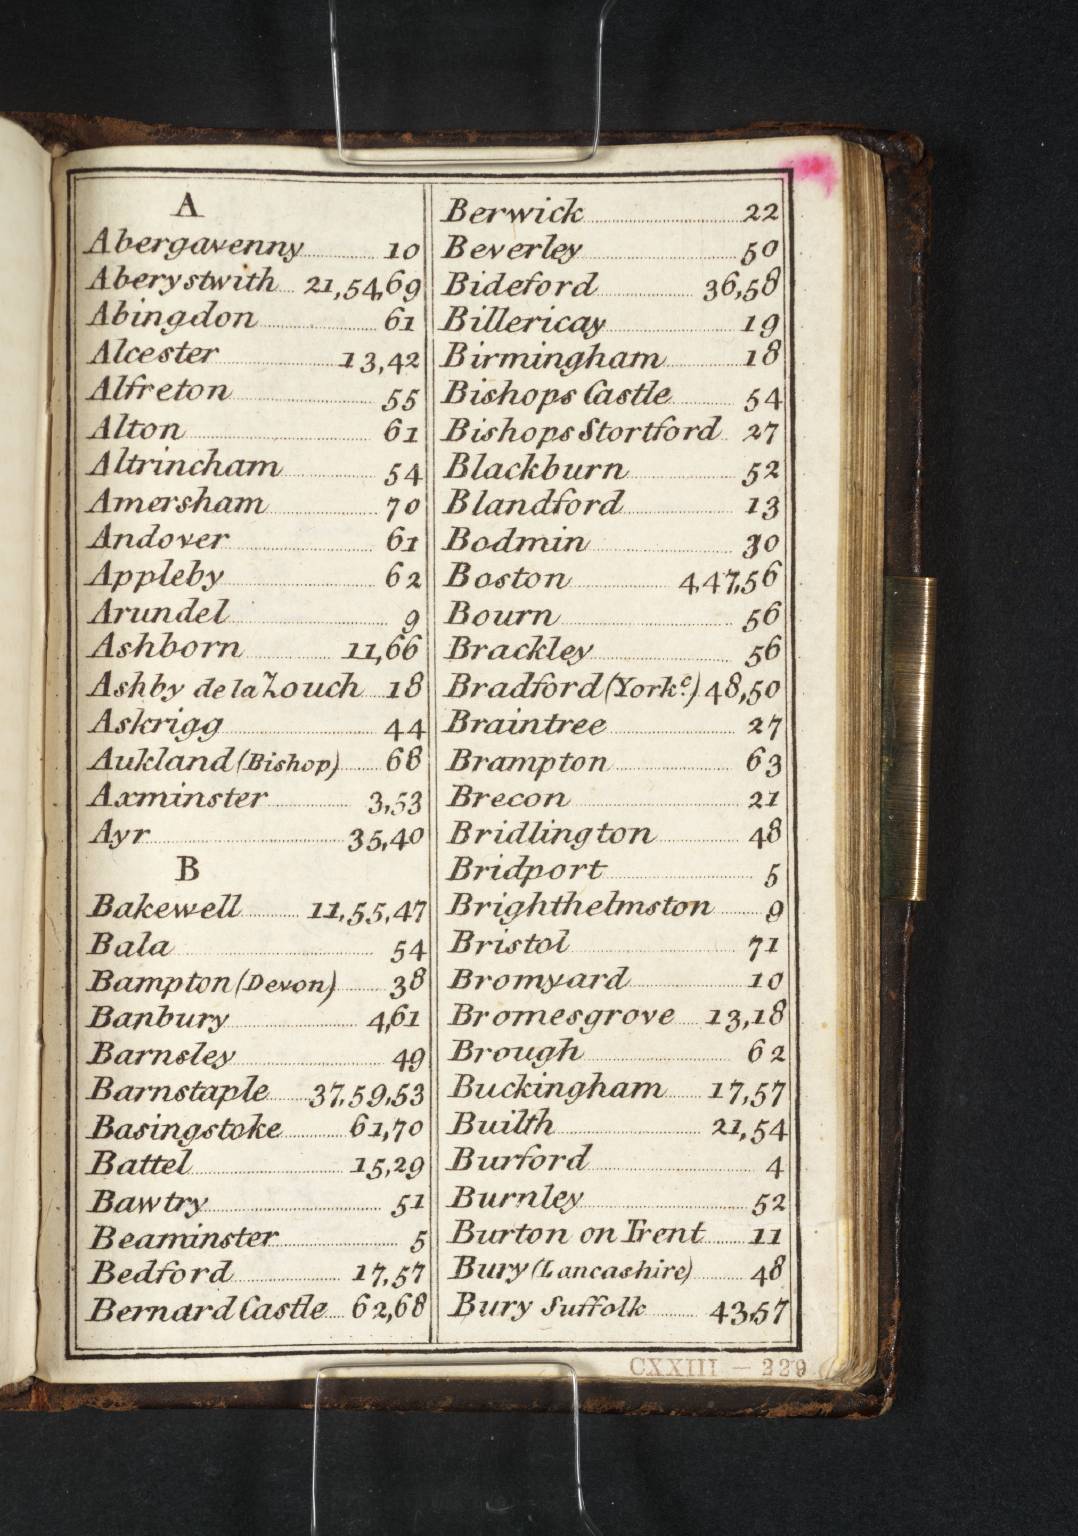 A
Abergavenny 10
Aberystwith 21,54,69
Abingdon 61
Alcester 13,42
Alfreton 55
Alton 61
Altrincham 54
Amersham 70
Andover 61
Appleby 62
Arundel 9
Ashborn 11,66
Ashby de la Zouch 18
Askrigg 44
Aukland (Bishop) 68
Axminster 3,53
Ayr 35,40
B
Bakewell 11,55,47
Bala 54
Bampton (Devon) 38
Banbury 4,61
Barnsley 49
Barnstaple 37,59,53
Basingstoke 61,70
Battel 15,29
Bawtry 51
Beaminster 5
Bedford 17,57
Bernard Castle 62,68
Berwick 22
Beverley 50
Bideford 36,58
Billericay 19
Birmingham 18
Bishops Castle 54
Bishops Stortford 27
Blackburn 52
Blandford 13
Bodmin 30
Boston 4,47,56
Bourn 56
Brackley 56
Bradford (Yorkᵉ.) 48,50
Braintree 27
Brampton 63
Brecon 21
Bridlington 48
Bridport 5
Brighthelmston 9
Bristol 71
Bromyard 10
Bromesgrove 13,18
Brough 62
Buckingham 17,57
Builth 21,54
Burford 4
Burnley 52
Burton on Trent 11
Bury (Lancashire) 48
Bury Suffolk 43,57
CXXIII — 229